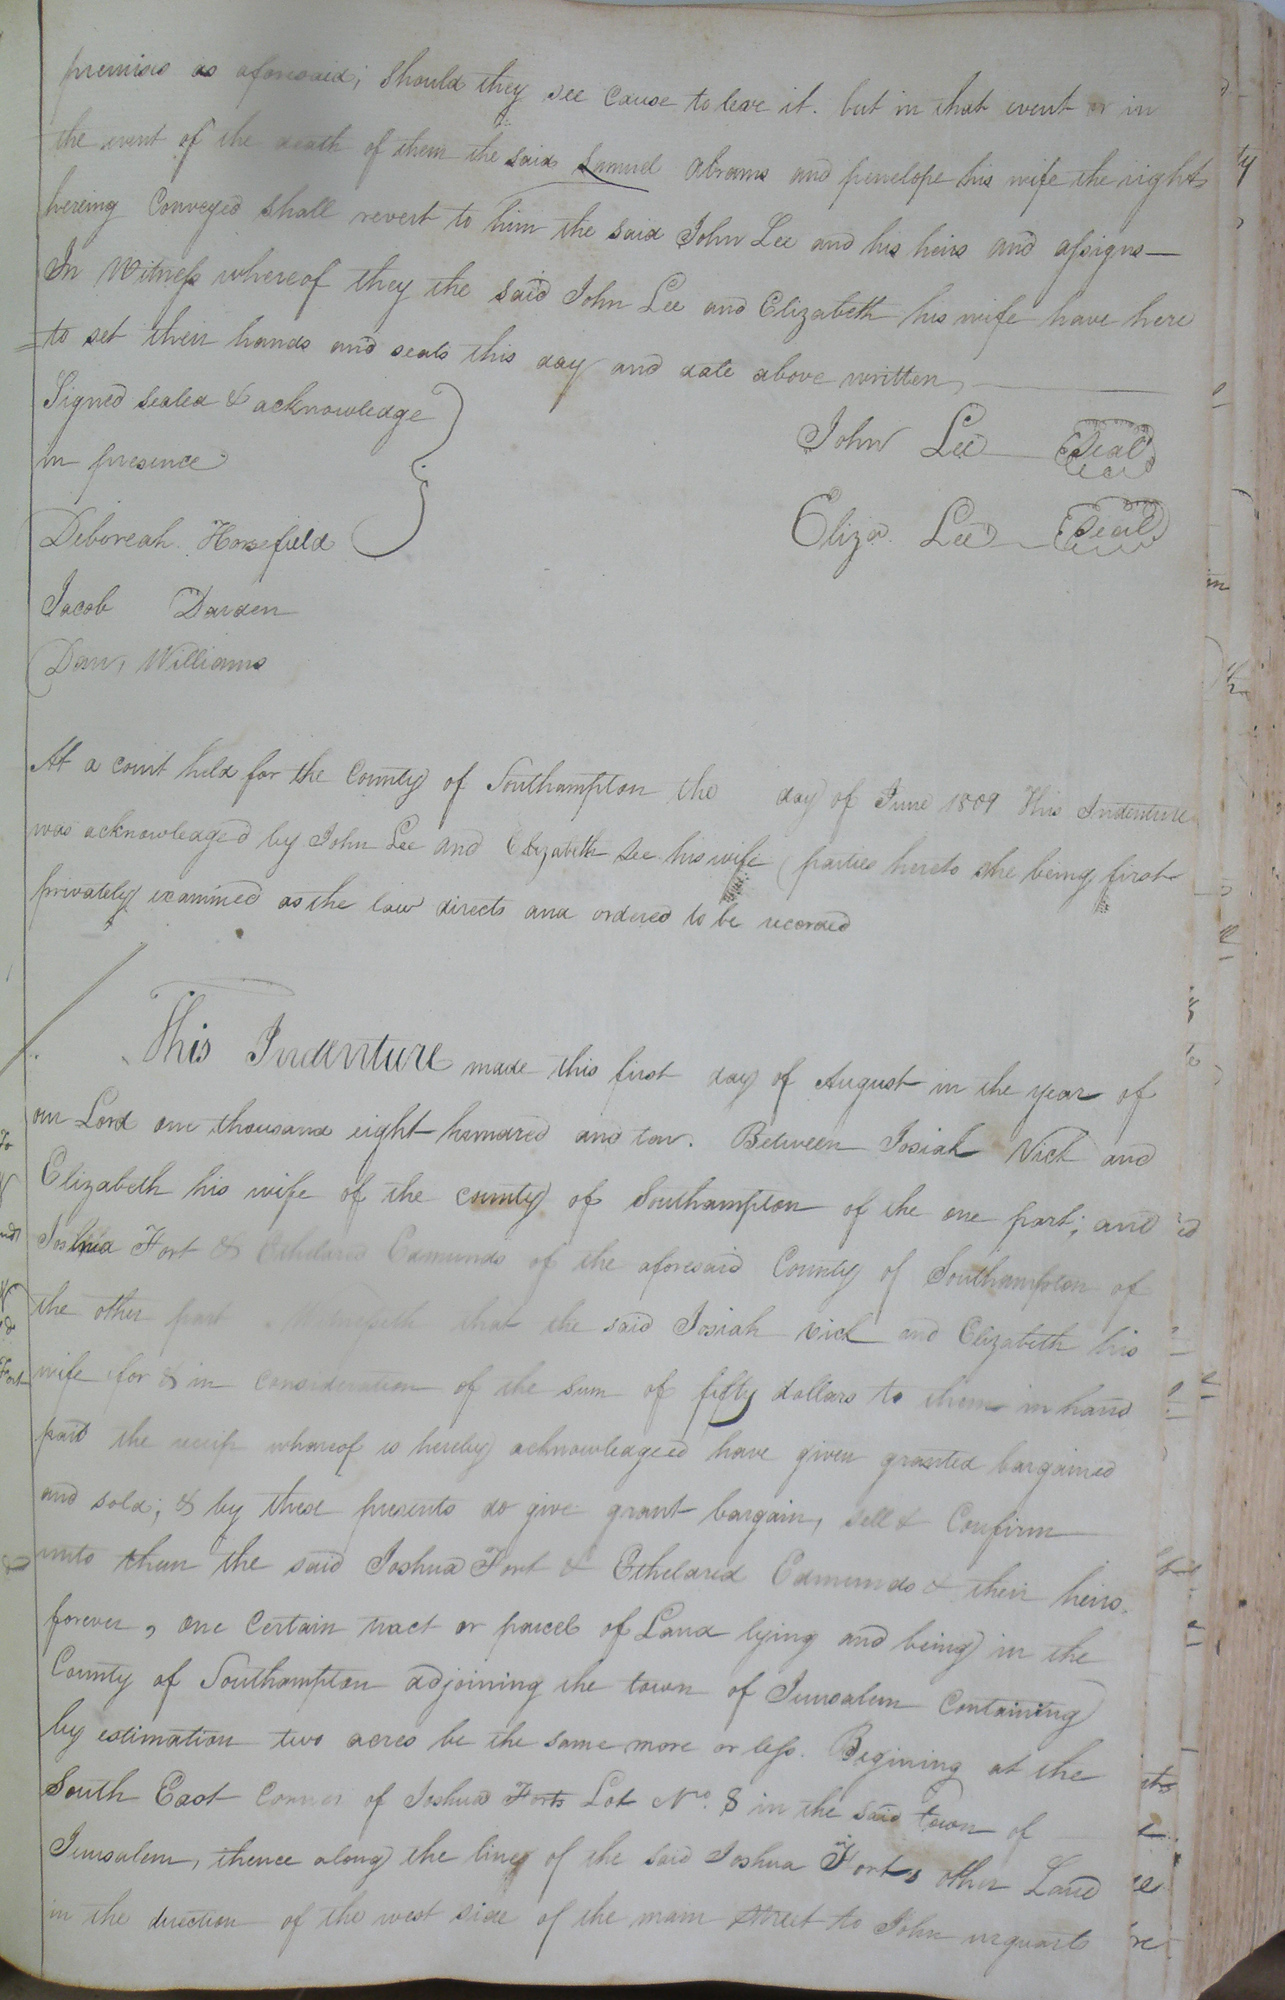 premises as aforesaid; should they see cause to leve it. but in that event or in
the event of the death of them the said Samuel Abrams and penelope his wife the rights
hereing Conveyed shall revert to him the said John Lee and his heirs and assigns —
In Witness whereof they the said John Lee and Elizabeth his wife have here
to set their hands and seals this day and date above written,
Signed sealed & acknowledge
in presence
John Lee Seal
Deboreah Horsefield
Eliza. Lee Seal
Jacob Darden
Dan, Williams
At a court held for the County of Southampton the day of June 1809 This Indenture
was acknowledged by John Lee and Elizabeth Lee his wife (parties hereto she being first
privately examined as the law directs and ordered to be recorded
This Indenture made this first day of August in the year of
our Lord one thousand eight hundred and ten. Between Josiah Vick and
Elizabeth his wife of the county of Southampton of the one part; and
Joshua Fort & Etheldred Edmunds of the aforesaid County of Southampton of
the other part Witnesseth that the said Josiah Vick and Elizabeth his
wife for & in consideration of the sum of fifty dollars to them in hand
paid the whareof is hereby acknowledgeed have given granted bargained
and sold; & by these presents do give grant bargain, sell & Confirm
unto them the said Joshua Fort & Etheldred Edmunds & their heirs.
forever, one Certain tract or parcel of Land lying and being in the
County of Southampton adjoining the town of Jerusalem Containing
by estimation two acres be the same more or less. Begining at the
South East Corner of Joshua Forts Lot No. 8 in the said town of
Jerusalem, thence along the lines of the said Joshua Forts other Land
in the direction of the west side of the main Street to John urquart